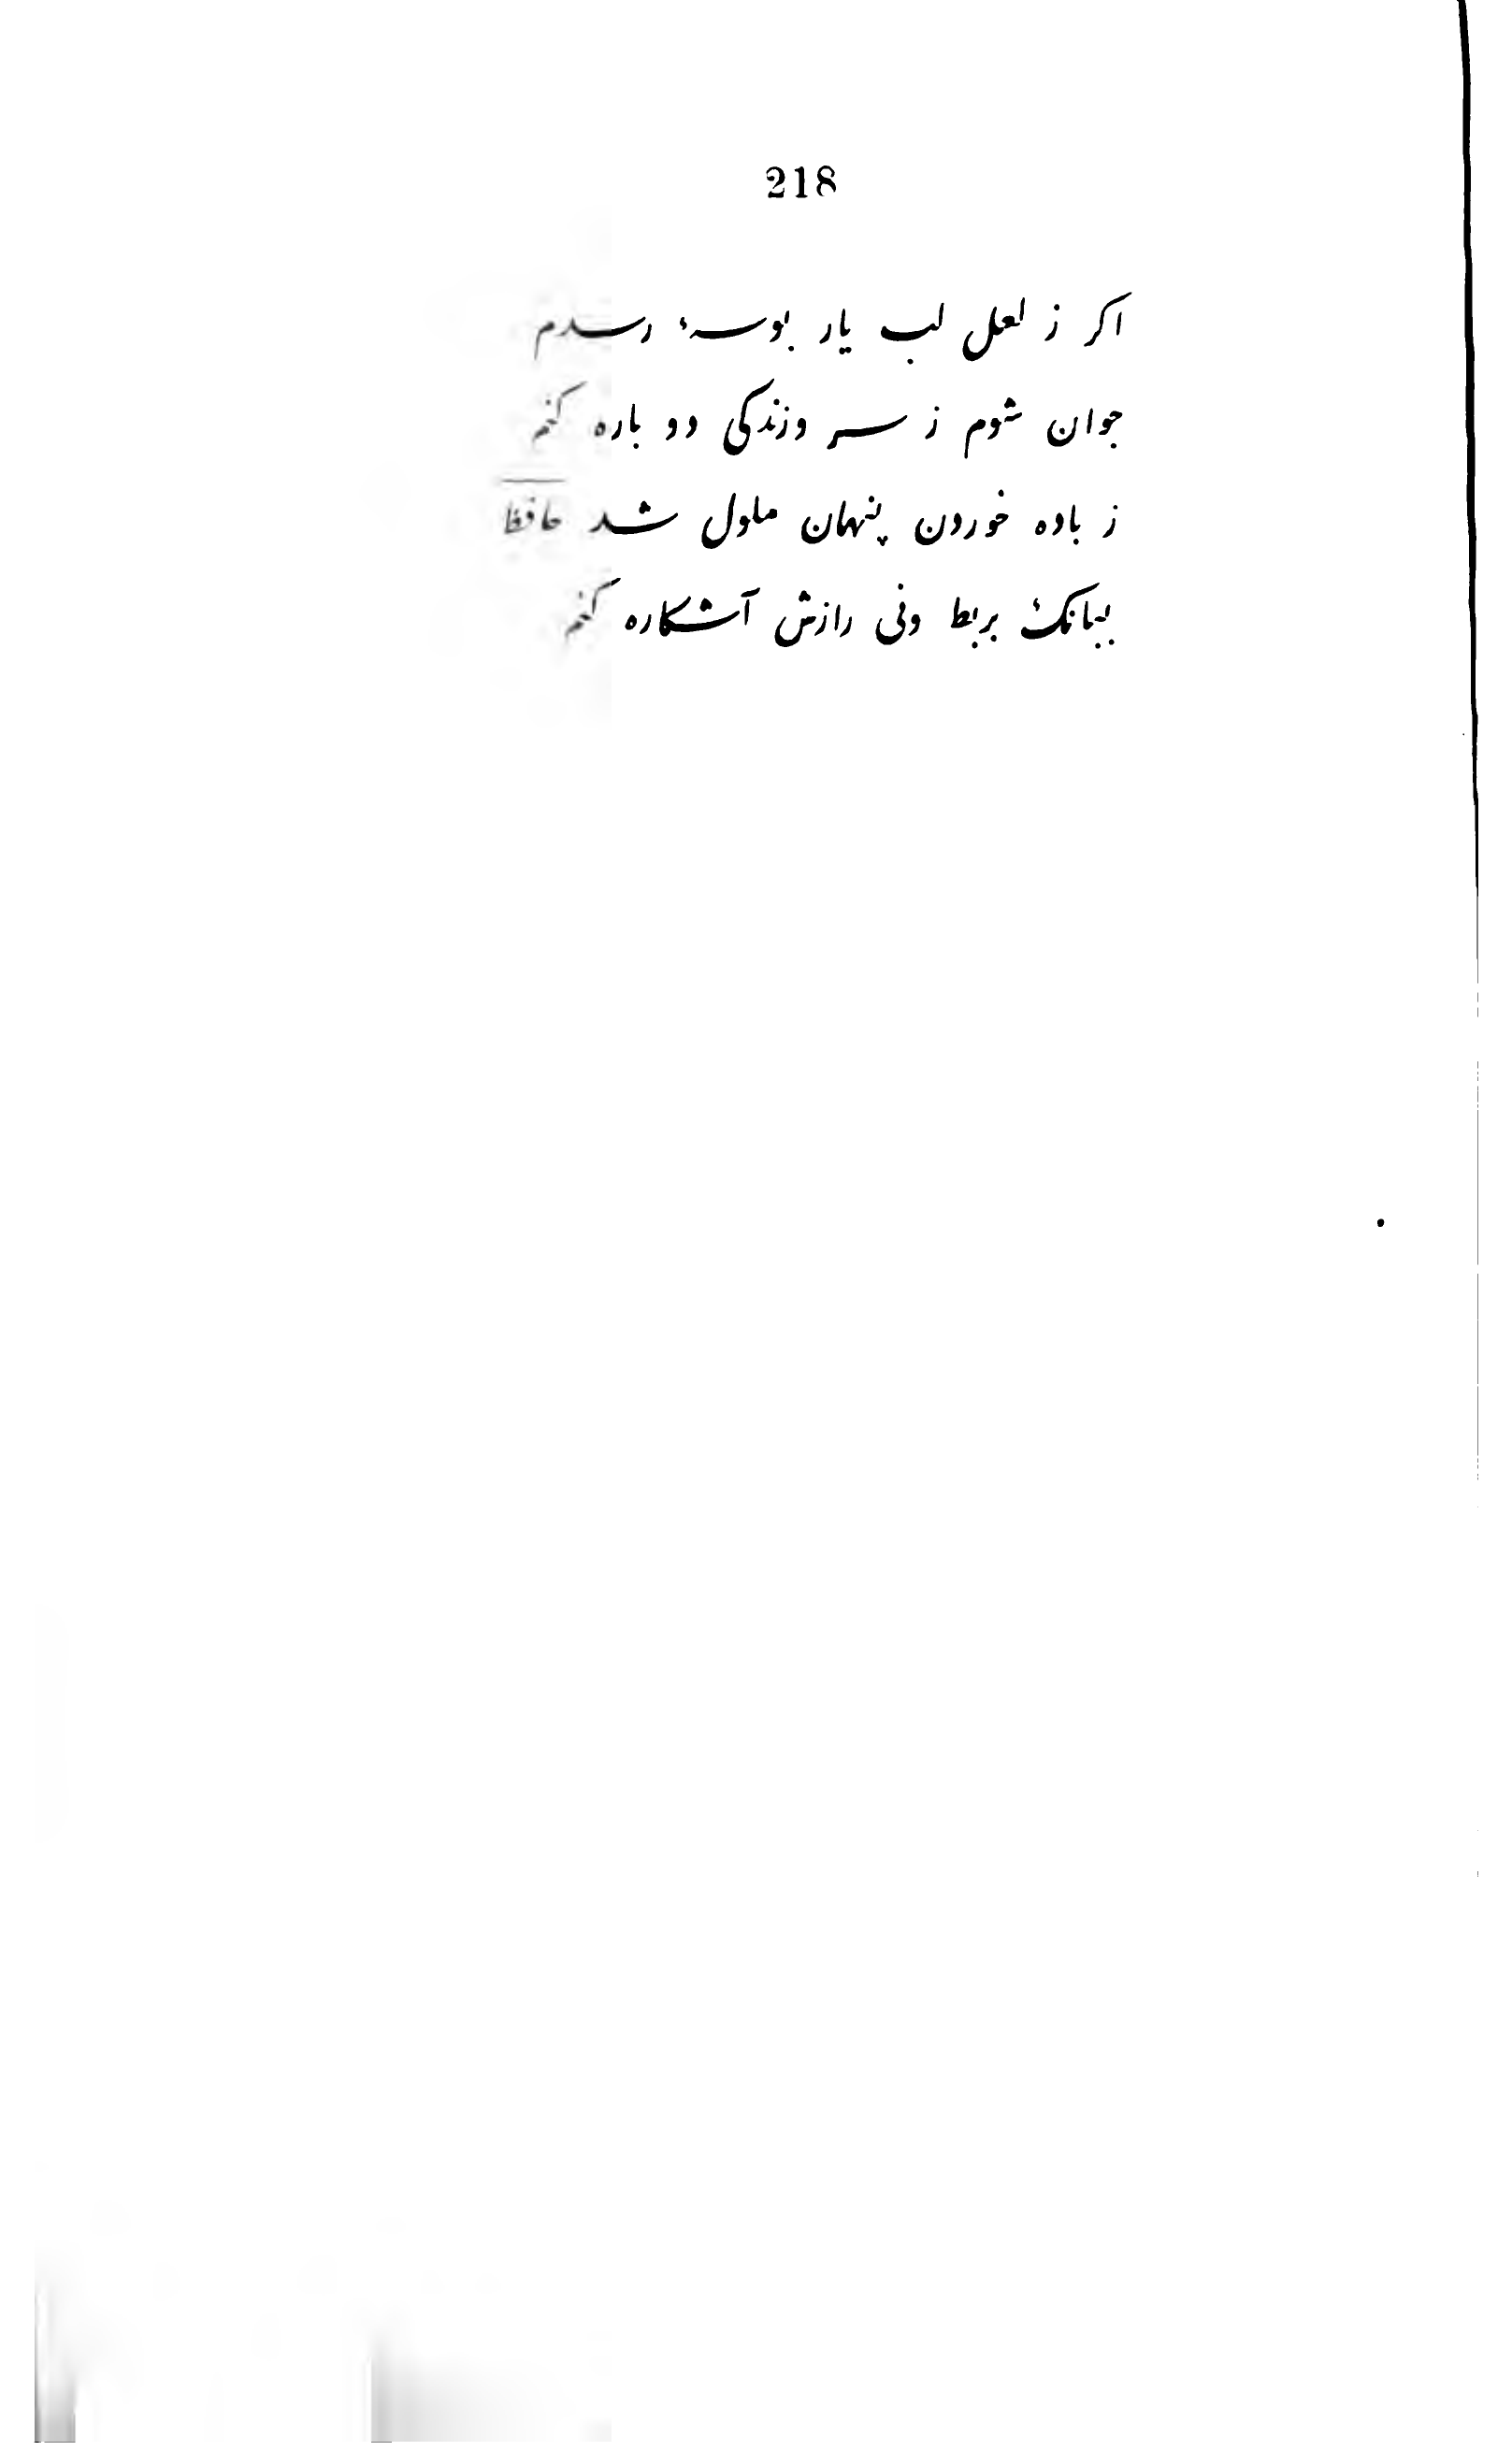 218
اكر ز لعل لب يار بوسهٔ رسدم
جوان شوم ز سر وزندكى دو باره كنم
ز باده خوردن پنهان ملول شد حافظ
ببانك بربط ونى رازش آشكاره كنم